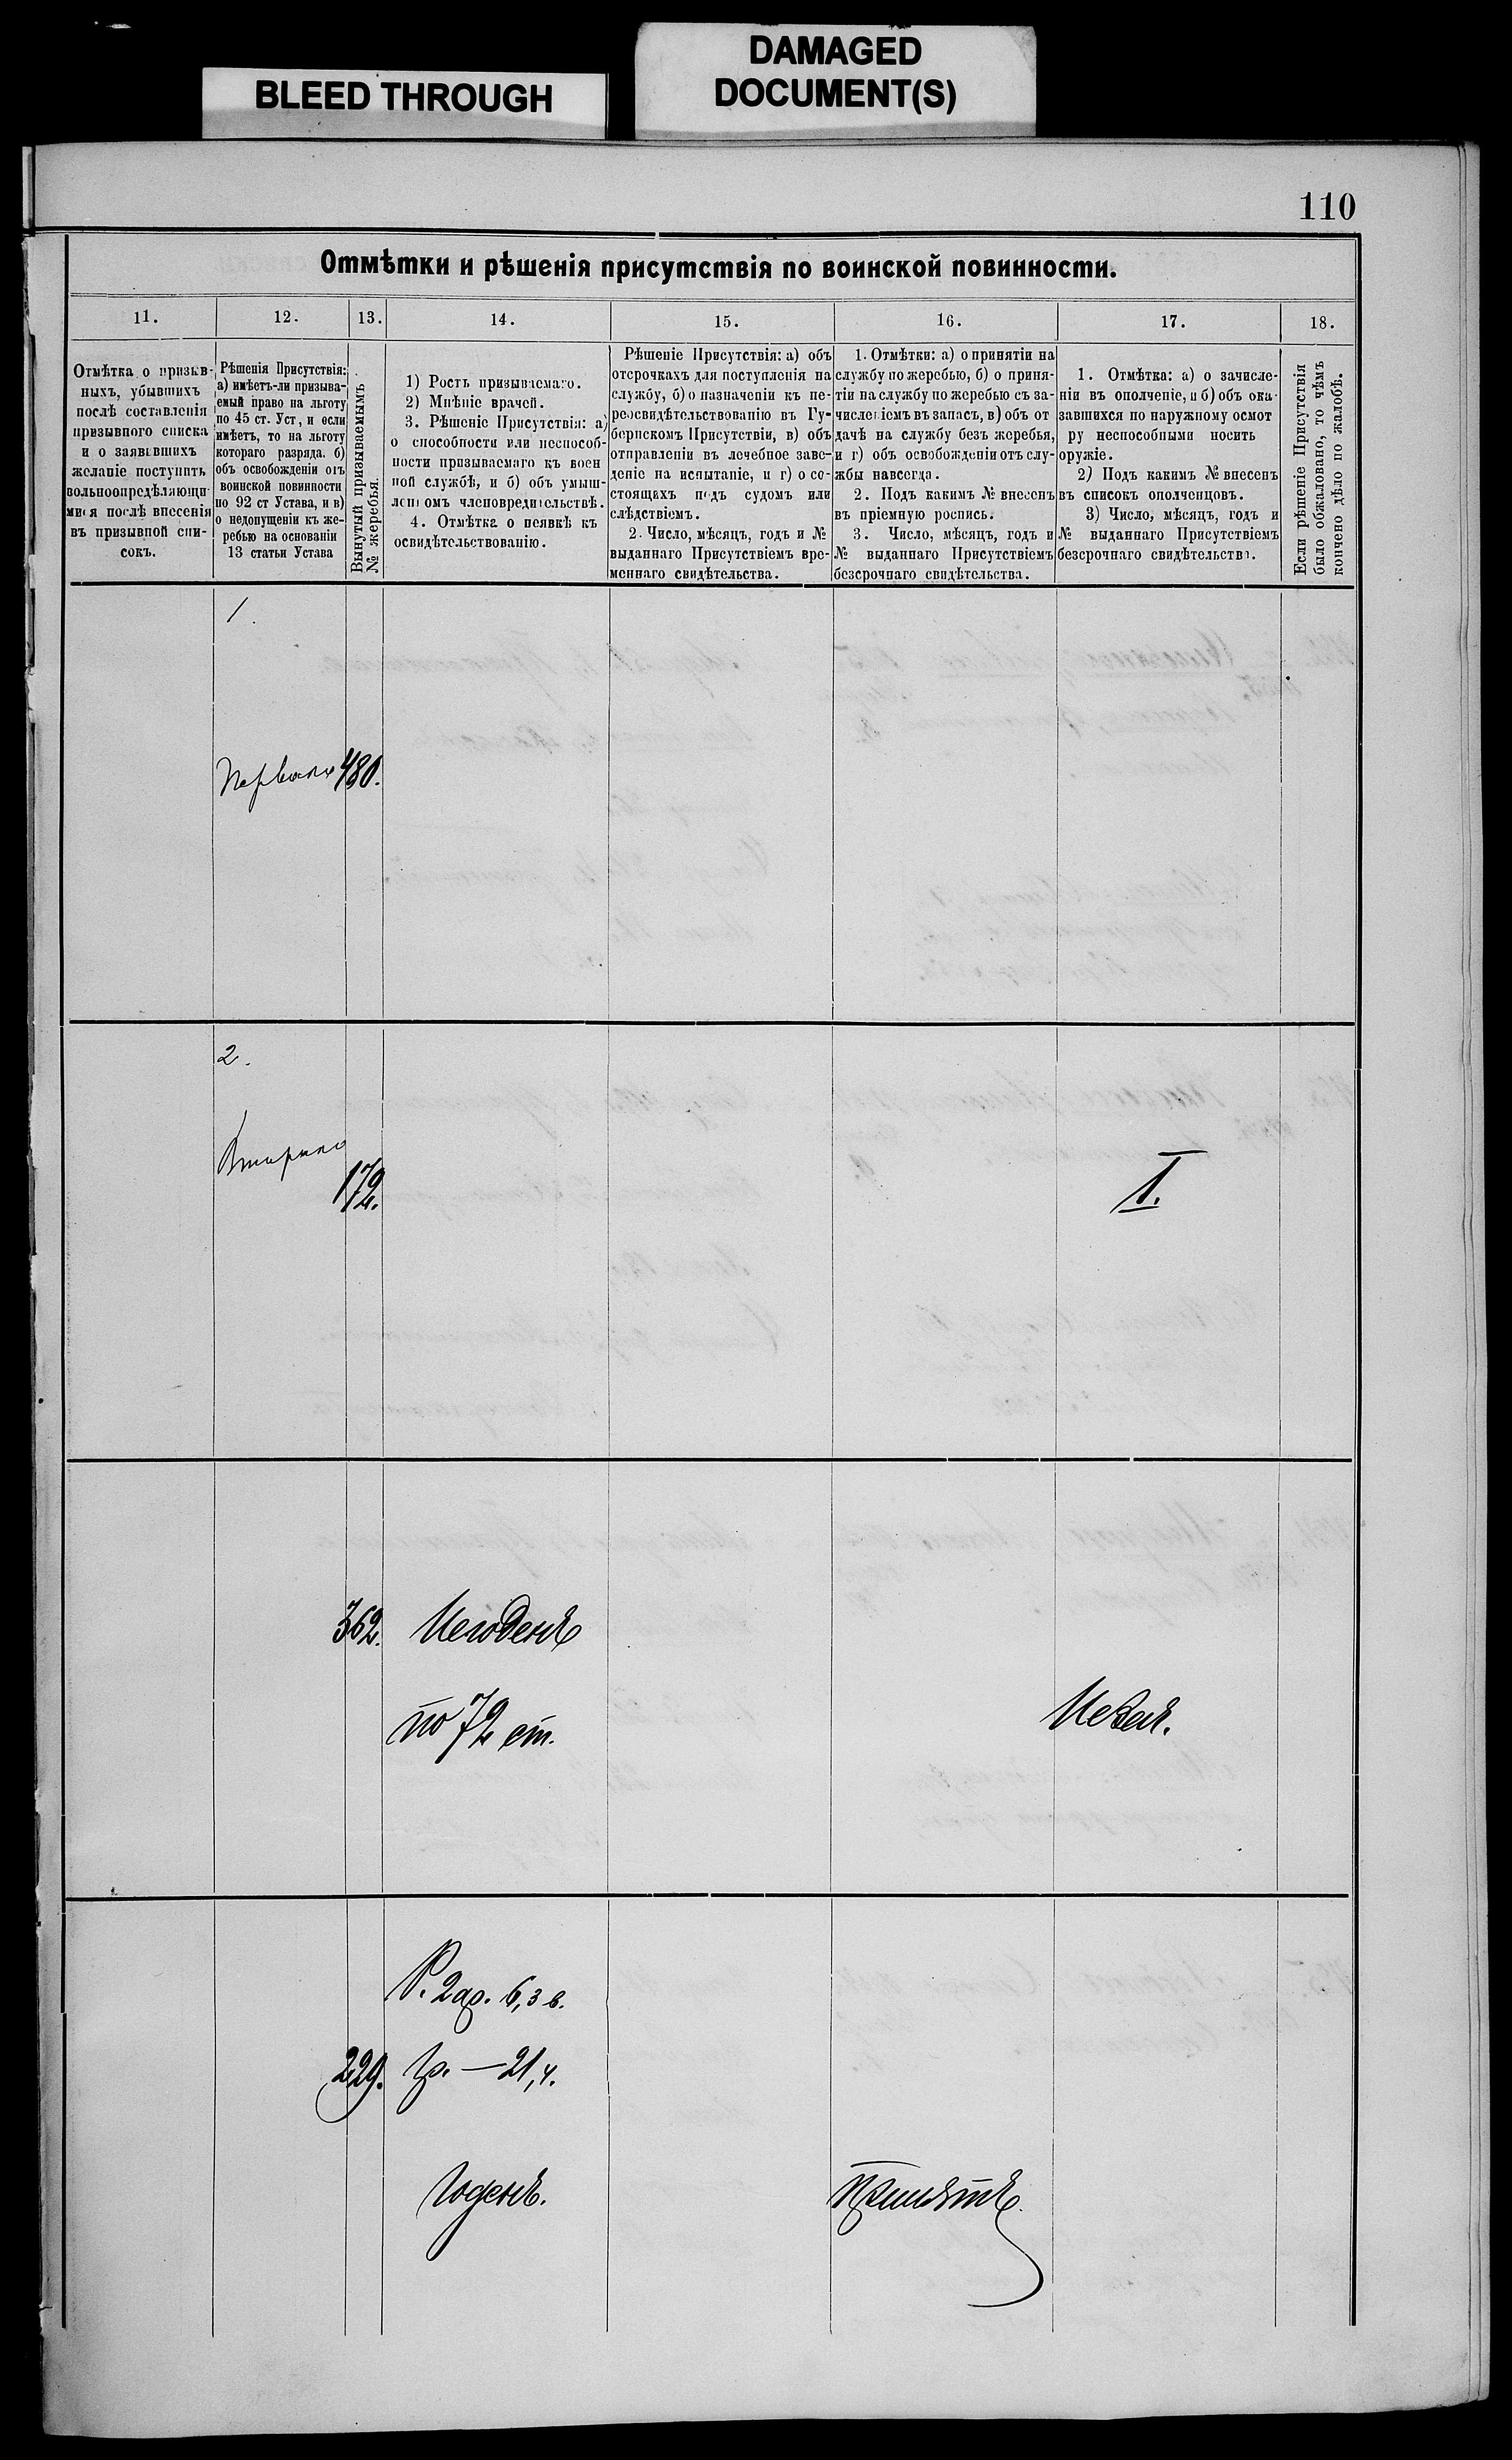 BLEED THROUGH
DAMAGED
DOCUMENT(S)
110
Отмѣтки и рѣшенія присутствія по воинской повинности.
11.
12.
13.
14.
15.
16.
17.
18.
Отмѣтка о призыв-
ныхъ, убывшихъ
послѣ составленія
призывного списка
и о заявившихъ
желаніе поступить
вольноопредѣляющи-
мися послѣ внесенія
въ призывной спи-
сокъ.
Рѣшенія Присутствія:
а) имѣетъ-ли призыва-
емый право на льготу
по 45 ст. Уст, и если
имѣетъ, то на льготу
котораго разряда. б)
объ освобожденіи отъ
воинской повинности
по 92 ст Устава, и в)
о недопущеніи къ же-
ребью на основаніи
13 статьи Устава
Вынутый призываемымъ
№ жеребья.
1) Ростъ призываемаго.
2) Мнѣніе врачей.
3. Рѣшеніе Присутствія: а)
о способности или неспособ-
ности призываемаго къ воен
ной службѣ, и б) объ умыш-
леномъ членовредительствѣ.
4. Отмѣтка о неявкѣ къ
освидѣтельствованію.
Рѣшеніе Присутствія: а) объ
отсрочкахъ для поступленія на
службу, б) о назначеніи къ пе-
реосвидѣтельствованію въ Гу-
бернскомъ Присутствіи, в) объ
отправленіи въ лечебное заве-
деніе на испытаніе, и г) о со-
стоящихъ подъ судомъ или
слѣдствіемъ.
2. Число, мѣсяцъ, годъ и №
выданнаго Присутствіемъ вре-
меннаго свидѣтельства.
1. Отмѣтки: а) о принятіи на
службу по жеребью, б) о приня-
тіи на службу по жеребью съ за-
численіемъ въ запасъ, в) объ от
дачѣ на службу безъ жеребья,
и г) объ освобожденіи отъ слу-
жбы навсегда.
2. Подъ какимъ № внесенъ
въ пріемную роспись.
3. Число, мѣсяцъ, годъ и
№ выданнаго Присутствіемъ
безсрочнаго свидѣтельства.
1. Отмѣтка: а) о зачисле-
ніи въ ополченіе, и б) объ ока-
завшихся по наружному осмот
ру неспособными носить
оружіе.
2) Подъ какимъ № внесенъ
въ списокъ ополченцовъ.
3) Число, мѣсяцъ, годъ и
№ выданнаго Присутствіемъ
безсрочнаго свидѣтельства.
Если рѣшеніе Присутствія
было обжаловано, то чѣмъ
кончено дѣло по жалобѣ.
1.
480.
2.
172.
I.
362. Негоденъ
по 72 ст.
Р. 2 ар. 6,3 в.
229. гр. — 21,4.
Годенъ.
Принятъ.